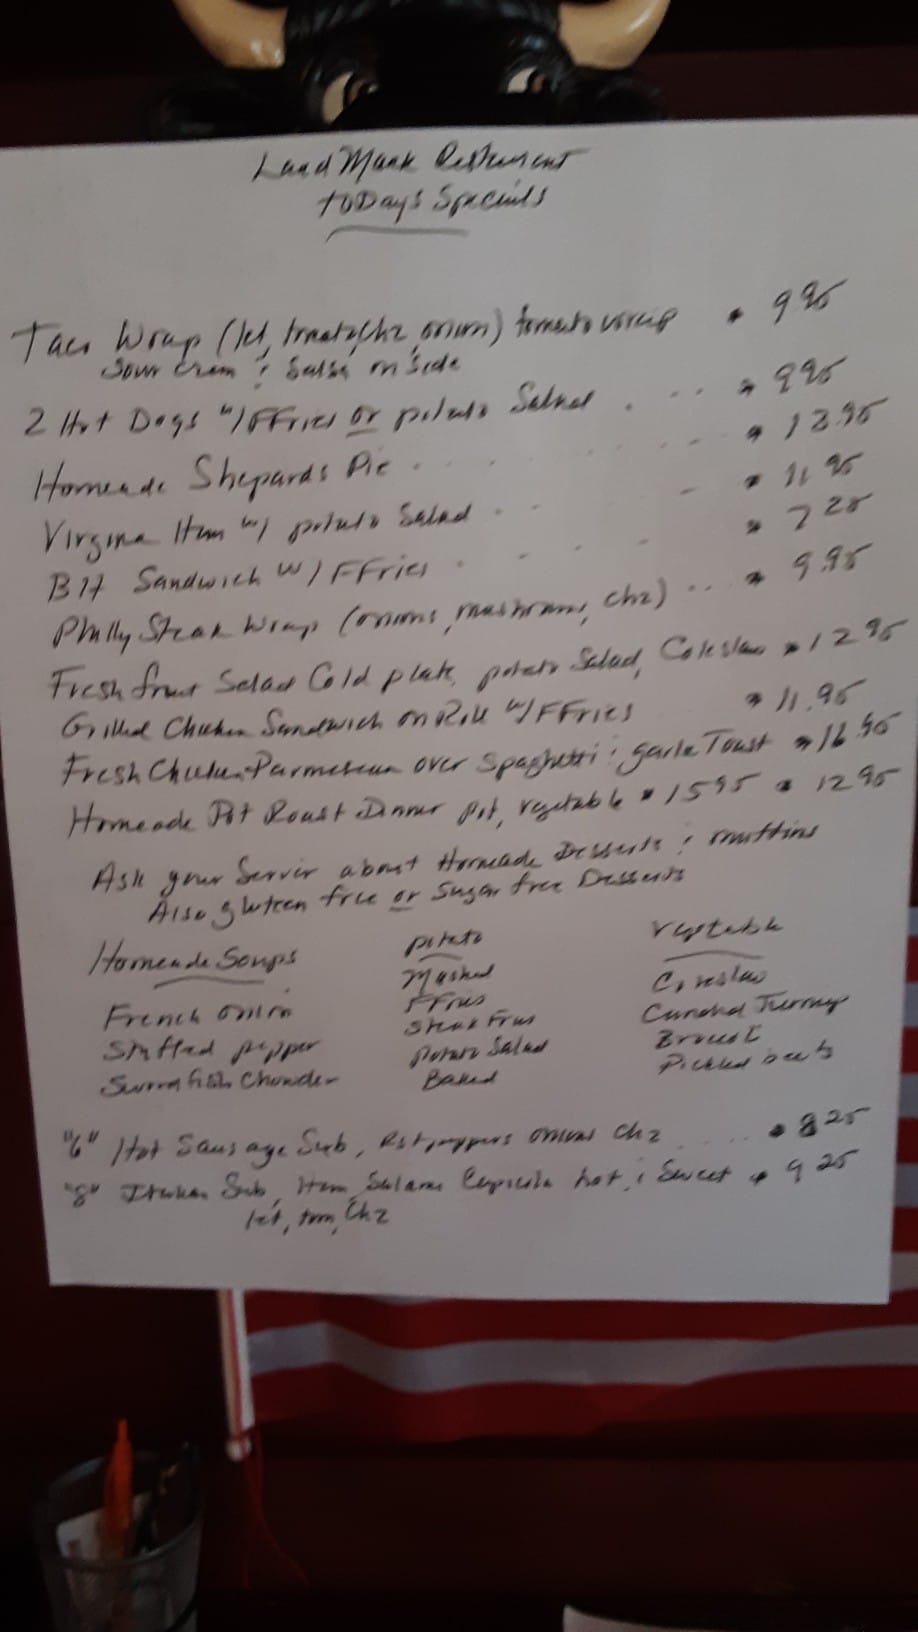 LandMark Resturent
toDays Specials
Taco Wrap (let, tomato, chz, onion) tomato wrap 9 95
Sour Cream & Salsa on Side
2 Hot Dogs w/ FFries or potato Salad . . . . 9 95
Homeade Shepards Pie . . . . . . . 13.95
Virgina Ham w/ potato Salad . . . - 11, 95
Blt Sandwich w/ FFries . . . . 7 25
Philly Steak Wrap (onions, mushrooms, chz) . . . 9.95
Fresh fruit Salad Cold plate, potato Salad, Coleslaw 12 95
Grilled Chicken Sandwich on Roll w/ FFries 11.95
Fresh Chicken Parmesean over Spaghetti & garlic Toast 16.95
Homeade Pot Roast Dinner pot, vegetable 15 95 12 95
Ask your Server about Homeade Desserts & muffins
Also gluteen free or Sugar free Desserts
Homeade Soups potato Vegetable
French onion Mashed Coleslaw
Stuffed pepper FFries Turnup
Swordfish Chowder Steak Fries Pickled beets
Potato Salad
Baked
"6" Hot Sausage Sub, Rst peppers onions Chz . . . . 8 25
"8" Italian Sub, Ham, Salami Capicola hot & Sweet 9 25
let, tom, Chz